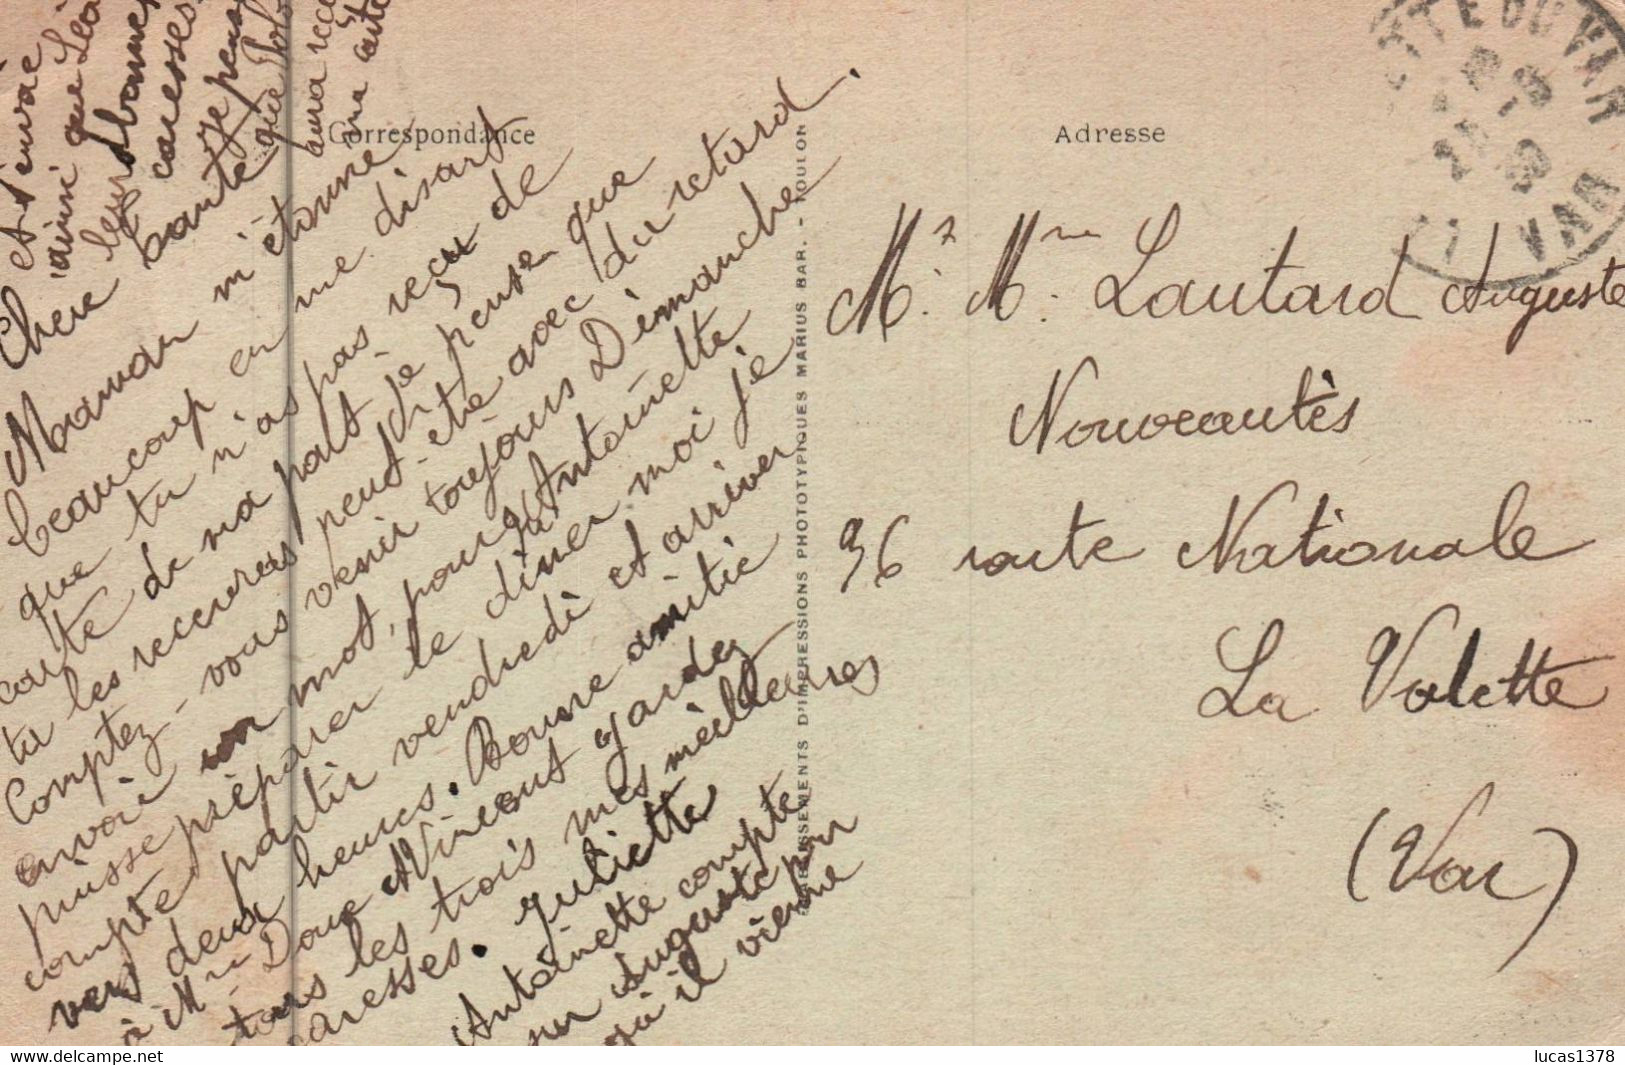 Correspondance
Adresse
Chère tante je pense que
Maman m'étonne
beaucoup en me disant
que tu n'as pas reçu de
carte de ma part. Je pense que
tu les recevras peut-être avec du retard.
Comptez-vous venir toujours Dimanche
envoie un mot, pour qu'Antoinette
puisse préparer le diner. moi je
compte partir vendredi et arriver
vers deux heures. Bonne amitié
à Mme Doue Vincent gardez
tous les trois mes meilleures
caresses. Juliette
Antoinette compte
sur Auguste pour
qu'il vienne
ainsi que Léa
leurs bonnes
caresses.
ETABLISSEMENTS D'IMPRESSIONS PHOTOTYPIQUES MARIUS BAR. - TOULON
VAR
Mr. Mme. Lautard Auguste
Nouveautés
36 route Nationale
La Valette
(Var)
delcampe.net
lucas1378